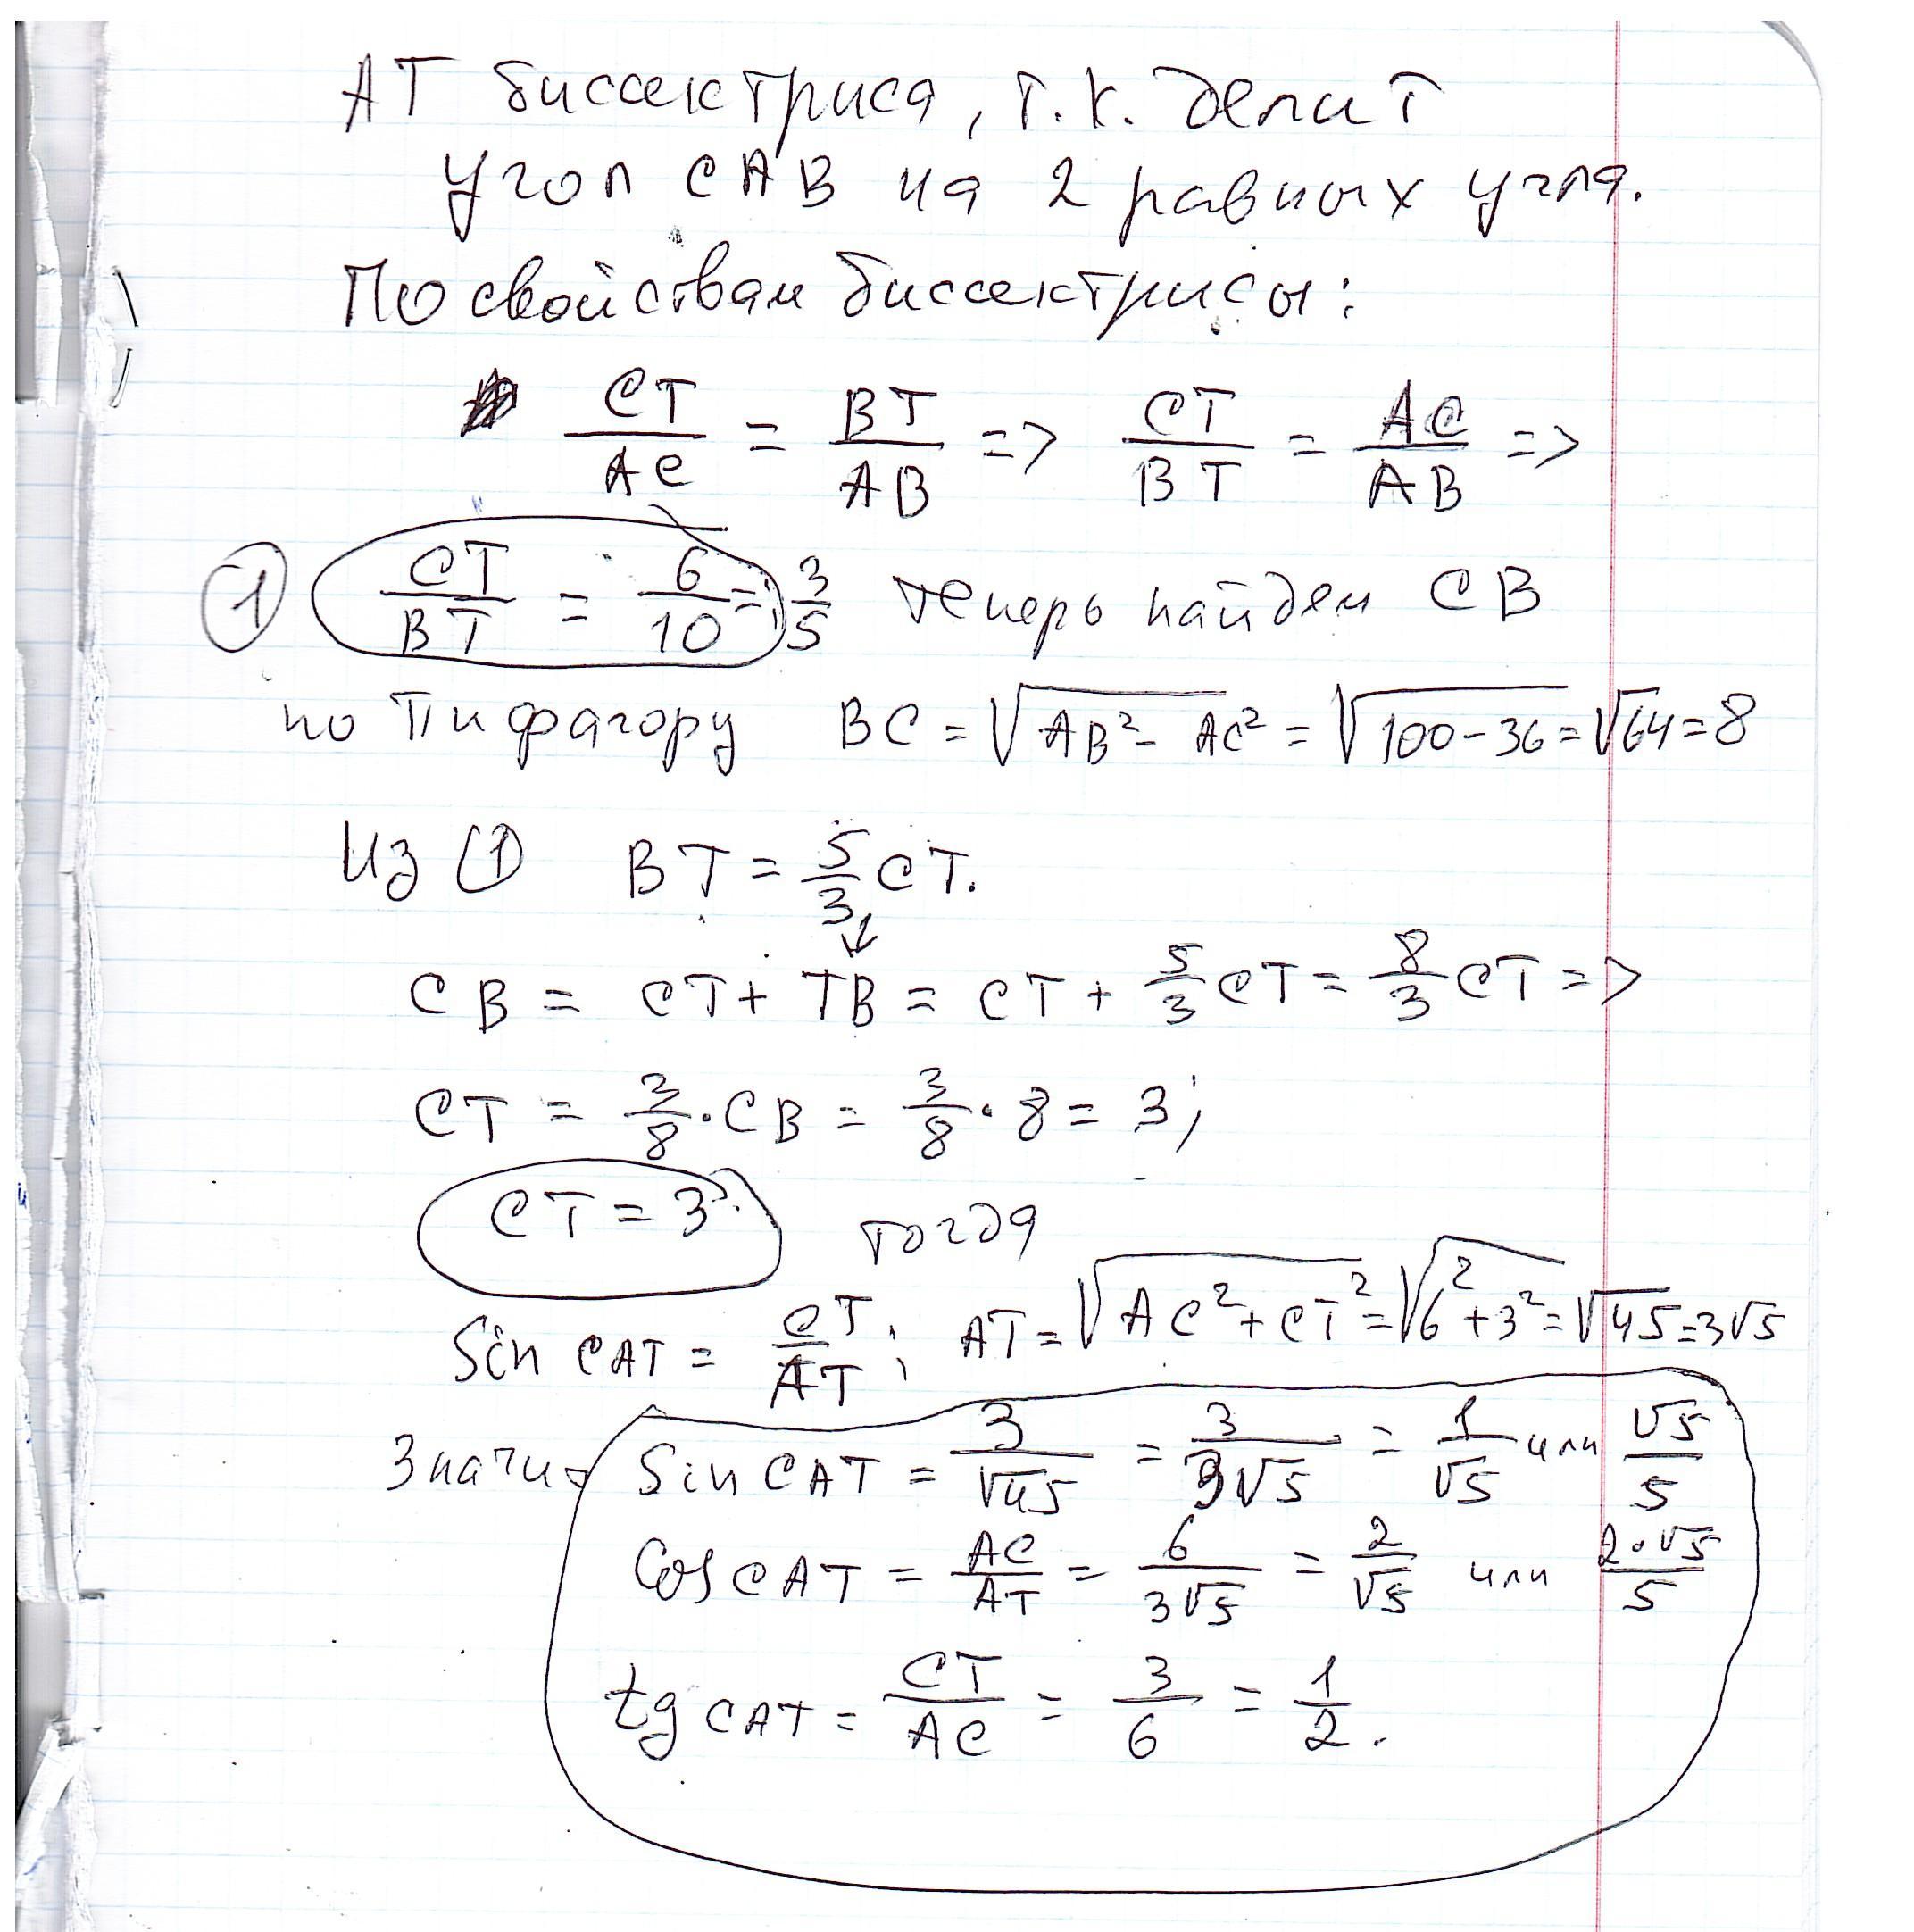 АТ биссектриса, т.к. делит
угол САВ на 2 равных угла.
По свойствам биссектрисы:
CT/AC = BT/AB => CT/BT = AC/AB =>
① CT/BT = 6/10 = 3/5 теперь найдем СВ
по Пифагору BC = √(AB² - AC²) = √(100 - 36) = √64 = 8
Из ① BT = 5/3 CT.
↓
CB = CT + TB = CT + 5/3 CT = 8/3 CT =>
CT = 3/8 · CB = 3/8 · 8 = 3;
CT = 3. тогда
Sin CAT = CT/AT; AT = √(AC² + CT²) = √(6² + 3²) = √45 = 3√5
Значит Sin CAT = 3/√45 = 3/3√5 = 1/√5 или √5/5
Cos CAT = AC/AT = 6/3√5 = 2/√5 или 2·√5/5
tg CAT = CT/AC = 3/6 = 1/2.